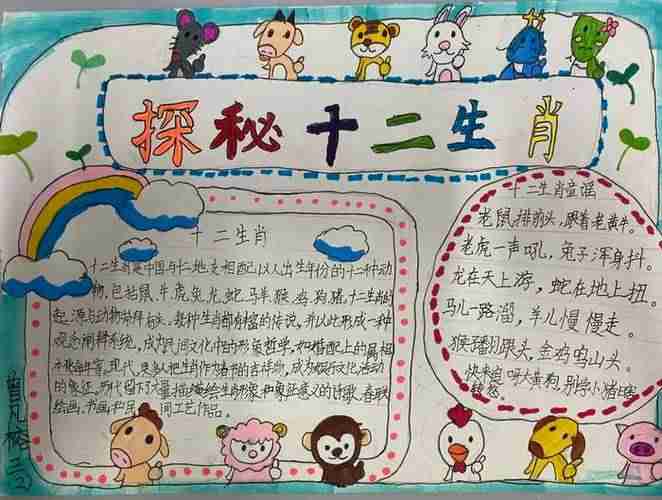 探秘十二生肖
十二生肖
十二生肖是中国与十二地支相配以人出生年份的十二种动
物,包括鼠、牛、虎、兔、龙、蛇、马、羊、猴、鸡、狗、猪。十二生肖的
起源与动物崇拜有关。每种生肖都有丰富的传说,并以此形成一种
观念阐释系统,成为民间文化中的形象哲学,如婚配上的属相
现代,更多人把生肖作为春节的吉祥物,成为娱乐文化活动
的象征。历代留下了大量描绘生肖形象和象征意义的诗歌、春联、
绘画、书画和民间工艺作品。
十二生肖童谣
老鼠排前头,跟着老黄牛。
老虎一声吼,兔子浑身抖。
龙在天上游,蛇在地上扭。
马儿一路溜,羊儿慢慢走。
猴子翻跟头,金鸡鸣山头。
快来追呀大黄狗,别学小猪
曾凡